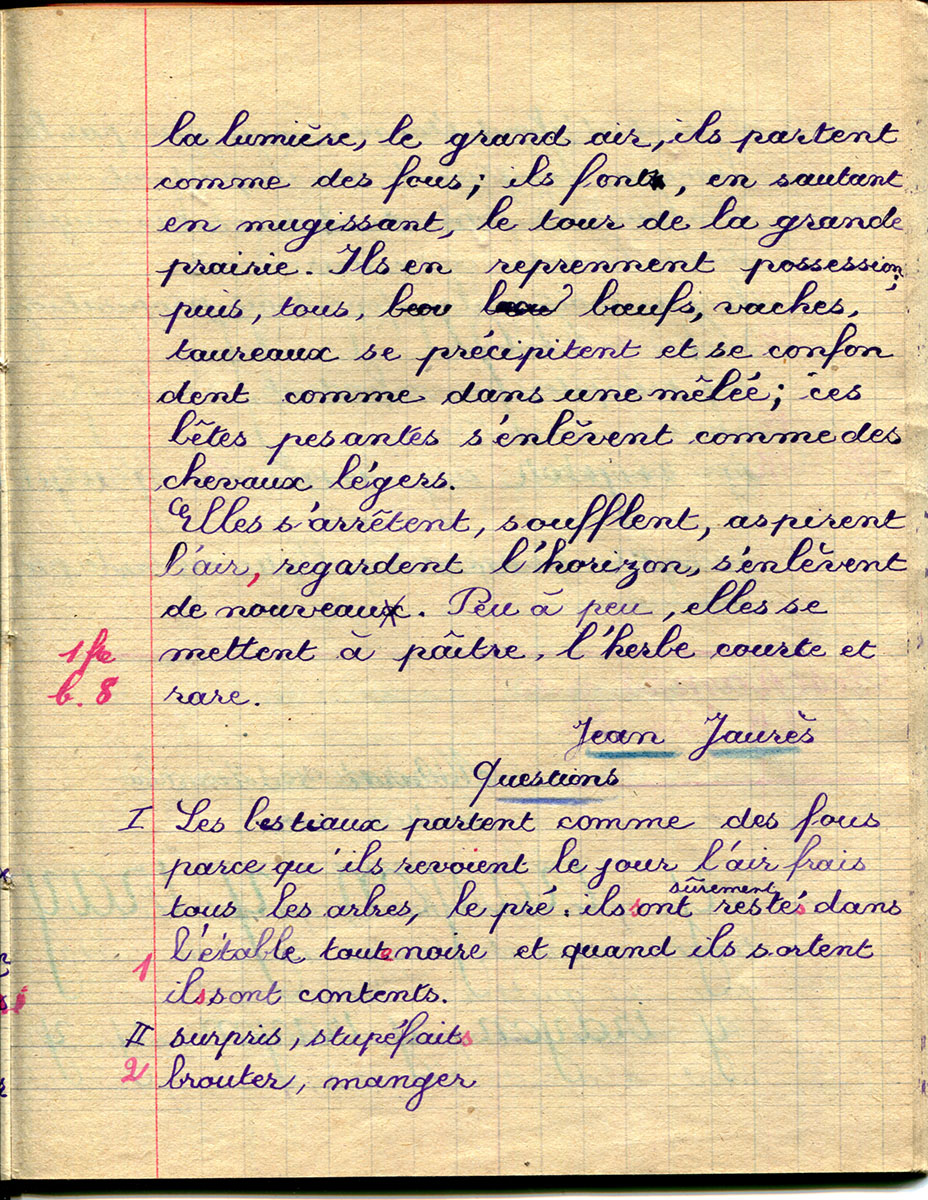 la lumière, le grand air, ils partent
comme des fous; ils font, en sautant
en mugissant, le tour de la grande
prairie. Ils en reprennent possession;
puis, tous, bœufs, vaches,
taureaux se précipitent et se confon
dent comme dans une mêlée; ces
bêtes pesantes s'enlèvent comme des
chevaux légers.
Elles s'arrêtent, soufflent, aspirent
l'air, regardent l'horizon, s'enlèvent
de nouveau. Peu à peu, elles se
1 fte mettent à paître, l'herbe courte et
b. 8 rare.
Jean Jaurès
Questions
I Les bestiaux partent comme des fous
parce qu'ils revoient le jour l'air frais
tous les arbres, le pré. ils sont sûrement restés dans
l'étable toute noire et quand ils sortent
1 ils sont contents.
II surpris, stupéfaits
2 brouter, manger